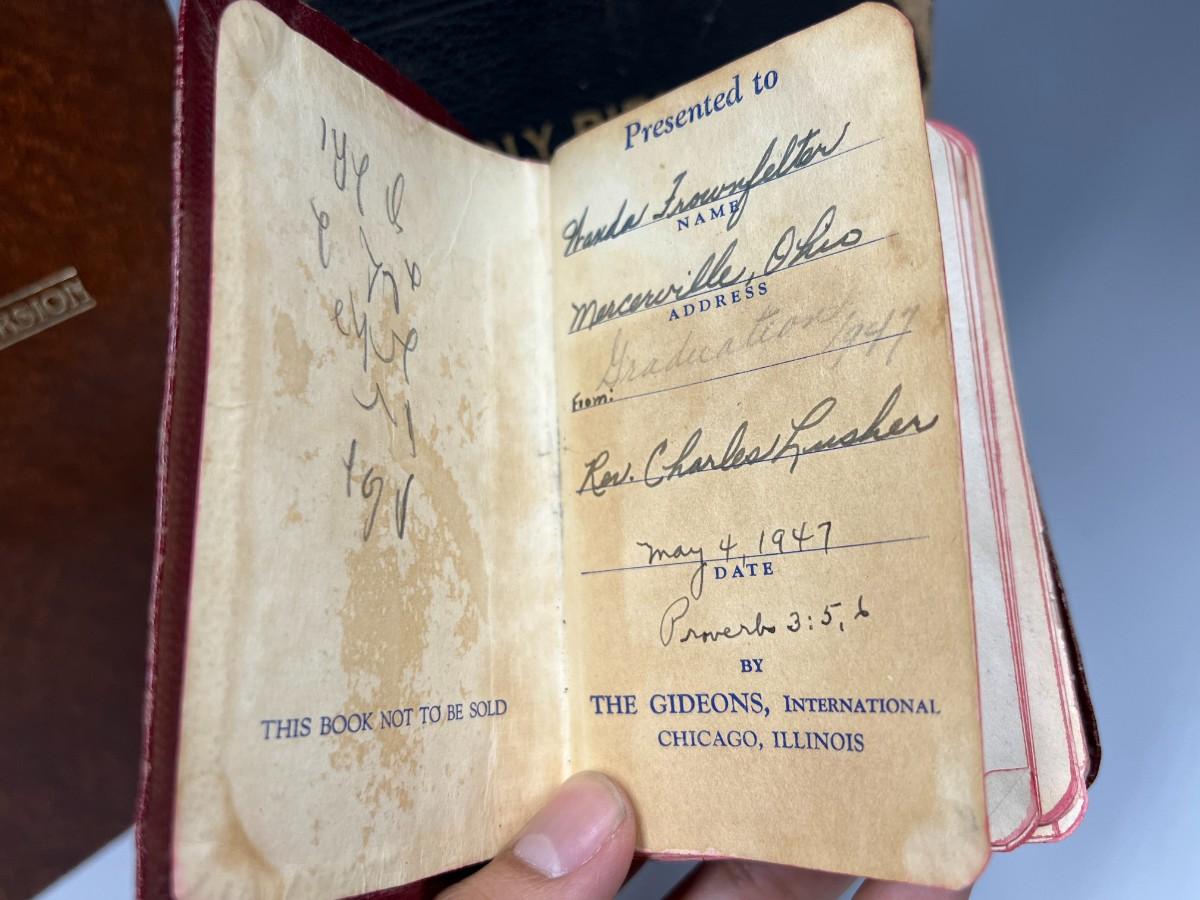 RSION
THIS BOOK NOT TO BE SOLD
Presented to
Wanda Frownfelter
NAME
Mercerville, Ohio
ADDRESS
Graduation, 1947
From:
Rev. Charles Lusher
May 4, 1947
DATE
Proverbs 3:5,6
BY
THE GIDEONS, INTERNATIONAL
CHICAGO, ILLINOIS